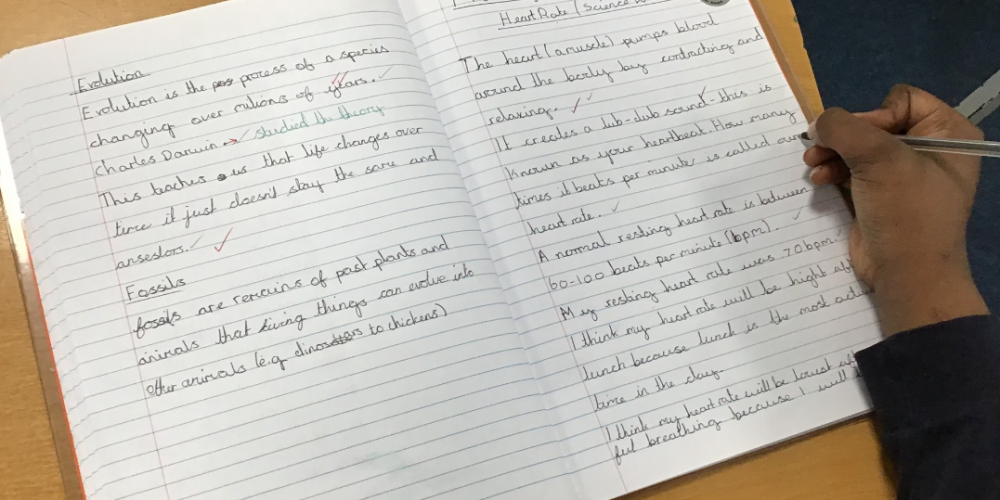 Evolution
Evolution is the process of a species
changing over milions of years.
Charles Darwin studied the theory
This teaches us that life changes over
time it just doesn't stay the same and
ansestors.
Fossils
fossils are remains of past plants and
animals that living things can evolve into
other animals (e.g dinosaurs to chickens)
Heart Rate (Science
The heart (a muscle) pumps blood
around the body by contracting and
relaxing.
It creates a lub-dub sound - this is
known as your heartbeat. How many
times it beats per minute is called our
heart rate.
A normal resting heart rate is between
60-100 beats per minute (bpm).
My resting heart rate was 70bpm.
I think my heart rate will be hight
lunch because lunch is the most
time in the day.
I think my heart rate will be lowest
breathing because I will